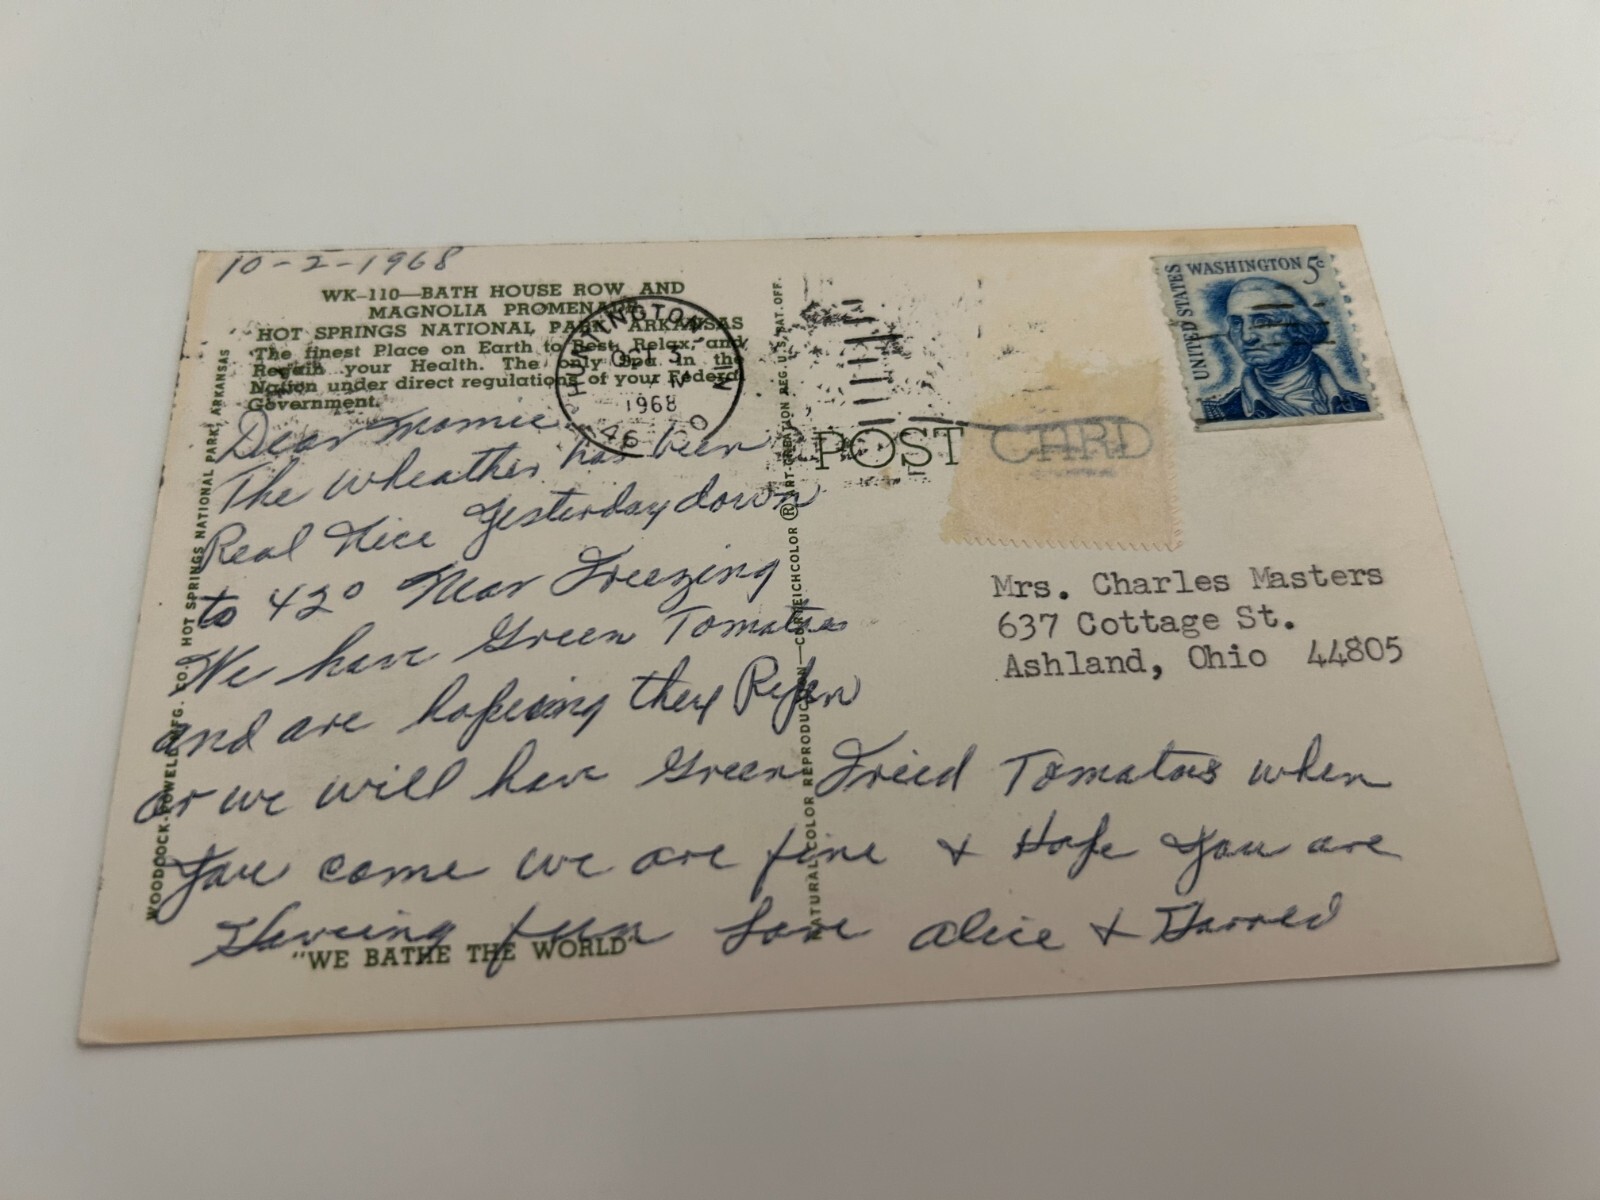 10-2-1968
WK-110—BATH HOUSE ROW AND
MAGNOLIA PROMENADE,
HOT SPRINGS NATIONAL PARK, ARKANSAS
The finest Place on Earth to Rest, Relax, and
Regain your Health. The only Spa in the
Nation under direct regulations of your Federal
Government.
HUNTINGTON, IN
OCT 3
1968
Dear Mamie
The wheather has been
Real Nice Yesterday down
to 42° Near Freezing
We have Green Tomatoes
and are hopeing they Ripen
or we will have Green Fried Tomatoes when
You come we are fine & Hope You are
Haveing fun Love Alice & Harred
"WE BATHE THE WORLD"
WOODCOCK-POWELL MFG. CO., HOT SPRINGS NATIONAL PARK, ARKANSAS
NATURAL COLOR REPRODUCTION—CURTEICHCOLOR ® ART-CREATION REG. U.S. PAT. OFF.
POST CARD
UNITED STATES
WASHINGTON 5c
Mrs. Charles Masters
637 Cottage St.
Ashland, Ohio 44805